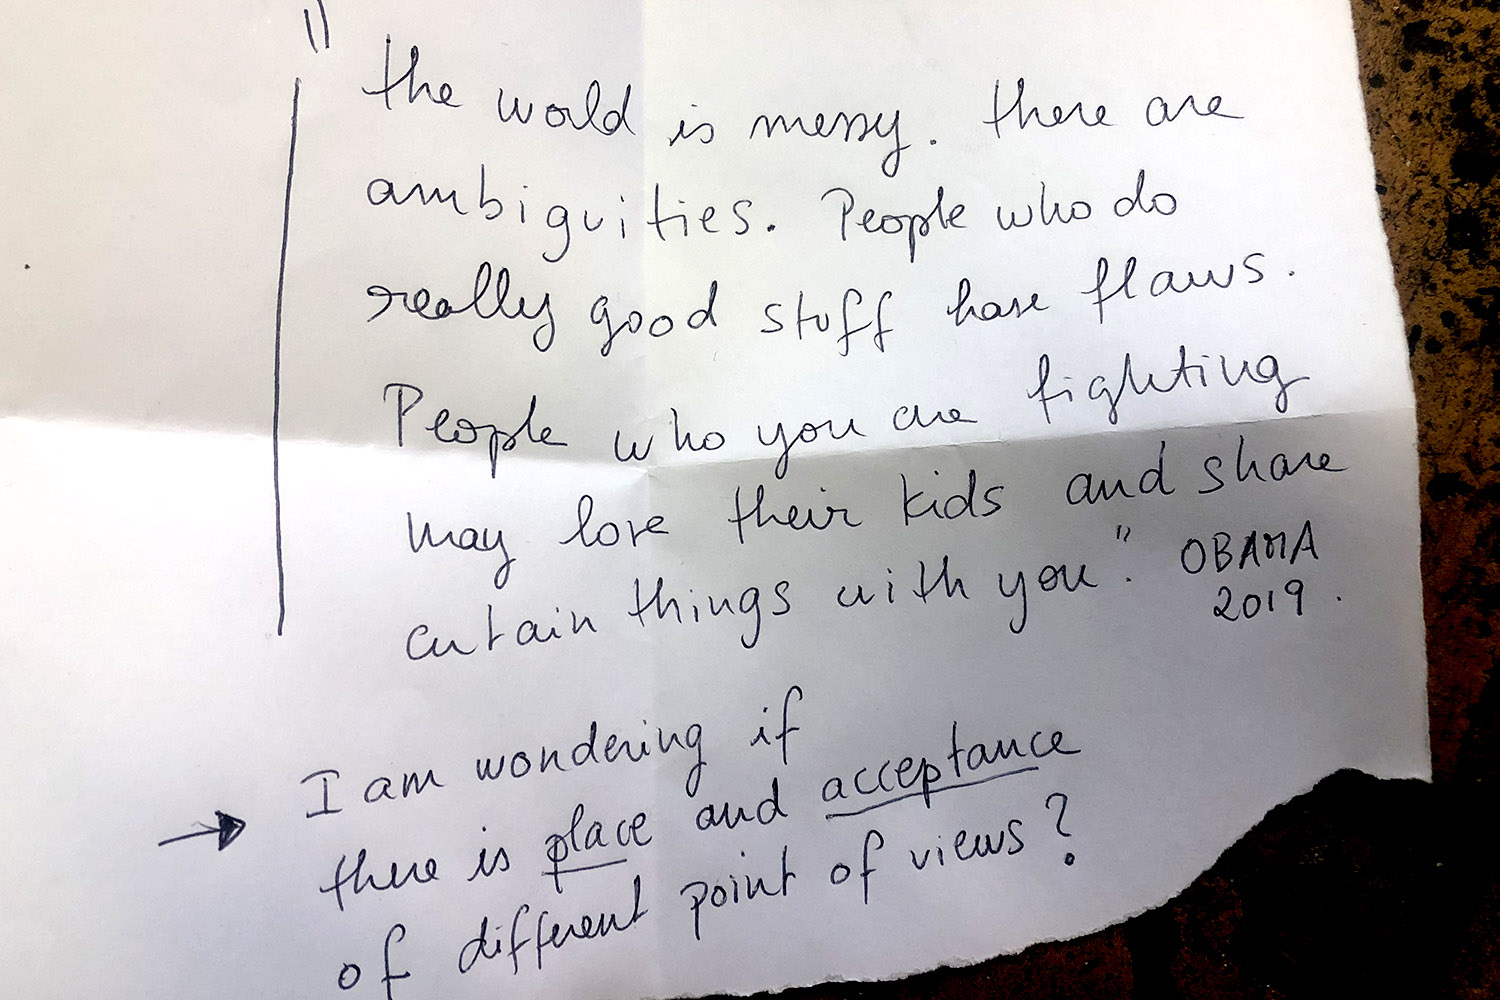 " the world is messy. there are
ambiguities. People who do
really good stuff have flaws.
People who you are fighting
may love their kids and share
certain things with you". OBAMA
2019.
→ I am wondering if
there is place and acceptance
of different point of views?